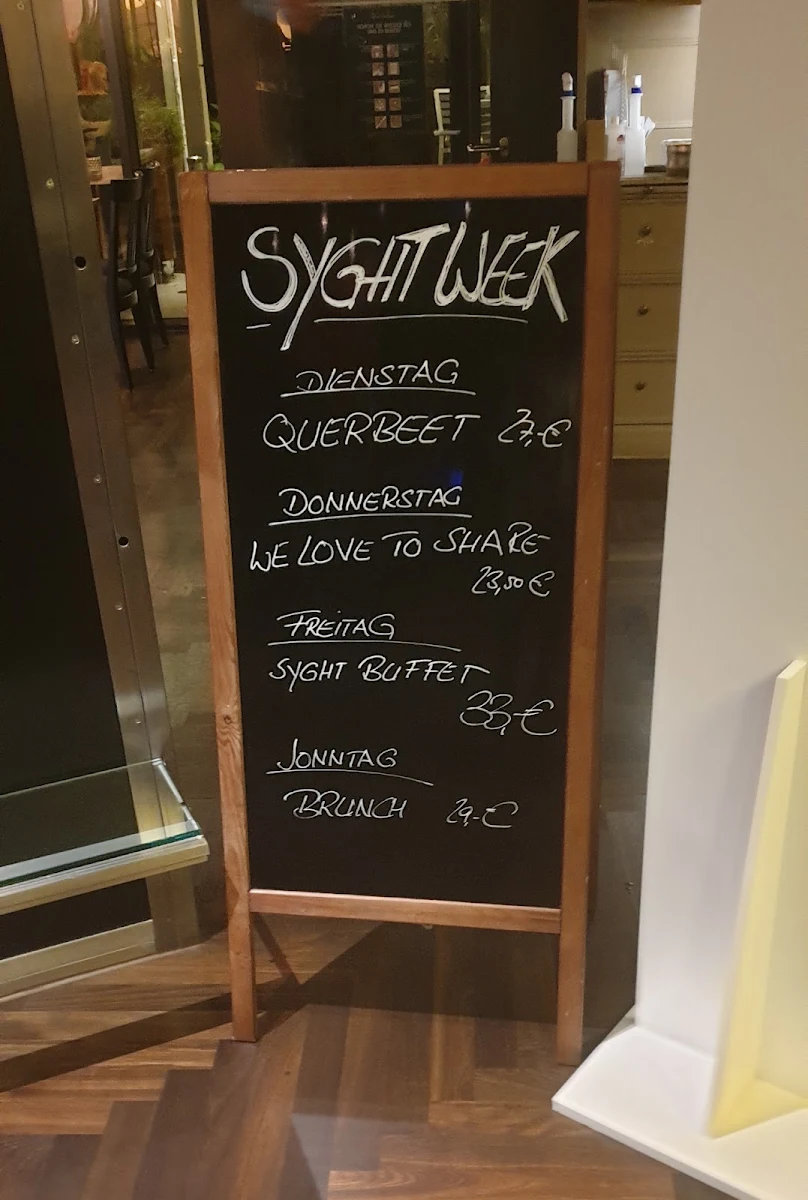 SYGHT WEEK
DIENSTAG
QUERBEET 27,-€
DONNERSTAG
WE LOVE TO SHARE
23,50 €
FREITAG
SYGHT BUFFET
33,-€
SONNTAG
BRUNCH 29,-€